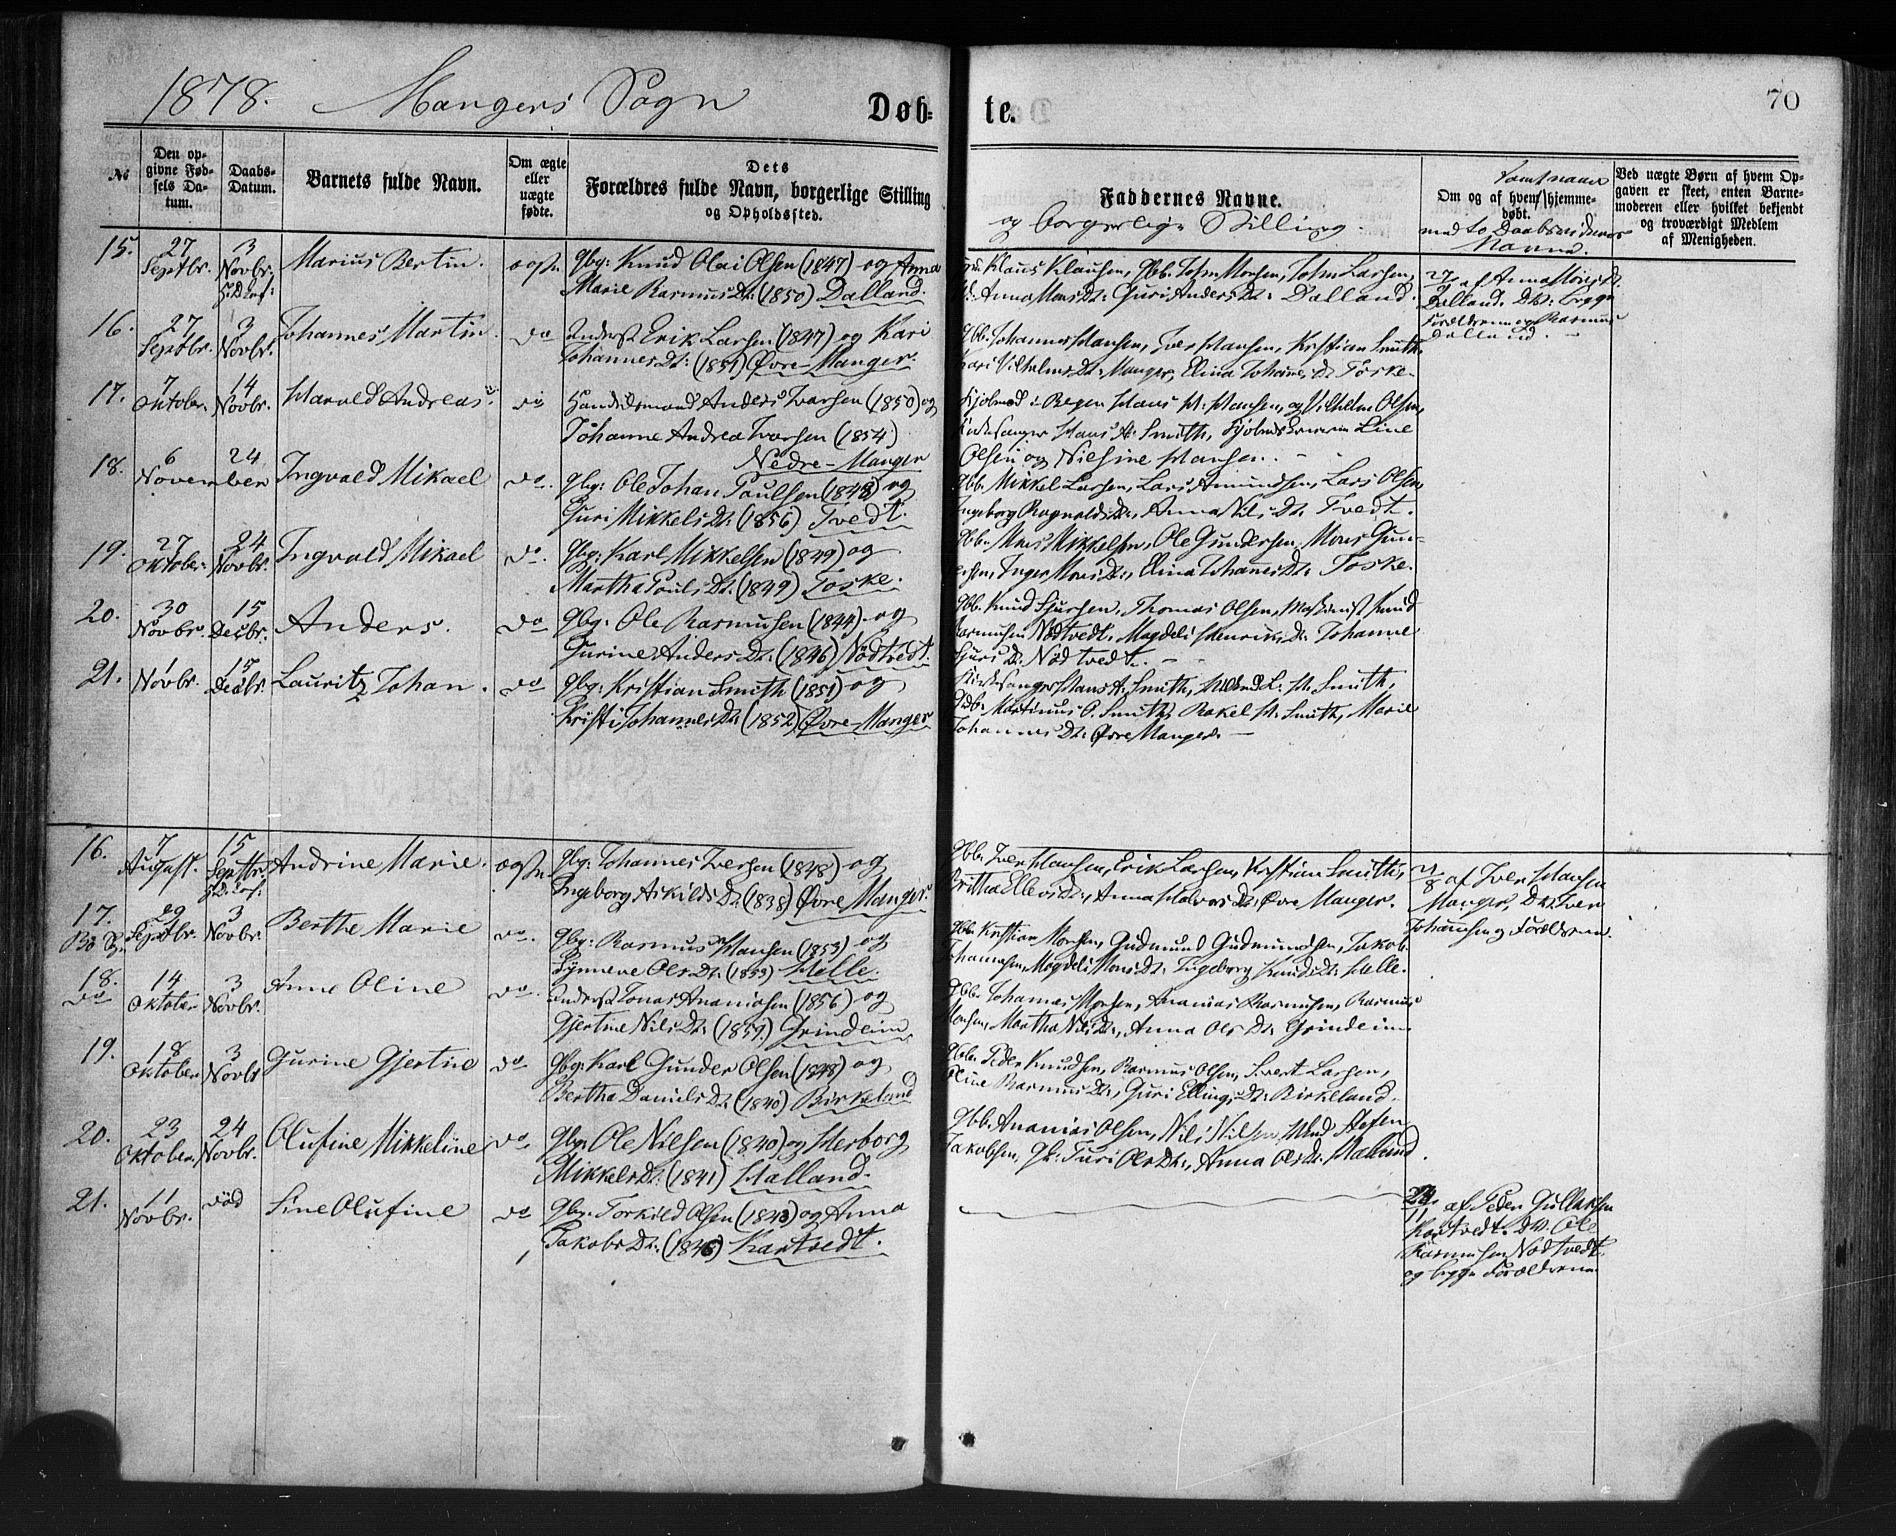 1878. Mangers Sogn
Døb=
te.
70
№
Den op-
givne Fød-
sels Da-
tum.
Daabs-
Datum.
Barnets fulde Navn.
Om ægte
eller
uægte
fødte.
Dets
Forældres fulde Navn, borgerlige Stilling
og Opholdssted.
Faddernes Navne.
og borgerlige Stilling.
samt naar
Om og af hvem hjemme-
døbt.
med to Daabsvidners
Navne.
Ved uægte Børn af hvem Op-
gaven er skeet, enten Barne-
moderen eller hvilket bekjendt
og troværdigt Medlem
af Menigheden.
15. 27 Septbr. 3 Novbr. Marius Bertin. Gbr: Knud Olai Olsen (1847) og Anna
Marie Rasmus Dt: (1850) Dalland.
Klaus Klausen, Gbb. John Monsen, John Larsen,
Anna Mons Dt: Guri Anders Dt: Dalland.
af Anna Mons Dt.
Dalland. begge
Forældrene og Rasmus
Dalland.
16. 27 Septbr. 3 Novbr. Johannes Martin. do Inderst Erik Larsen (1847) og Kari
Johannes Dt: (1851) Øvre-Manger.
Gbb. Johannes Hansen, Iver Hansen, Kristian Smith,
Kari Vilhelms Dt: Manger, Elina Johannes Dt Toske.
17. 7 Oktober. 14 Novbr. Harald Andreas. do Handelsmand Anders Iversen (1850) og
Johanne Andrea Iversen (1854)
Nedre-Manger
i Bergen Hans M. Hansen, og Vilhelm Olsen,
Kirkesanger Hans A. Smith, Line
Olsen og Nilsine Hansen.
18. 6 November 24 Ingvald Mikael do. Gbr: Ole Johan Paulsen (1848) og
Guri Mikkels Dt: (1856) Tvedt.
Gbb. Mikkel Larsen, Lars Amundsen, Lars Olsen,
Ingeborg Ragnalds Dt:, Anna Nils Dt: Tvedt.
19. 27 Oktober. 24 Novbr. Ingvald Mikael do. Gbr: Karl Mikkelsen (1849) og
Martha Pauls Dt: (1849) Toske.
Gbb. Mons Mikkelsen, Ole Gundersen, Mons Gun-
dersen, Inger Mons Dt:, Elina Johannes Dt: Toske.
20. 30 Novbr. 15 Decbr. Anders. do Gbr: Ole Rasmussen (1844) og
Gurine Anders Dt: (1846) Nødtvedt.
Gbb. Knud Sjursen, Thomas Olsen, Knud
Rasmussen Nødtvedt, Magdeli Henriks Dt: Johanne
Sjurs Dt: Nødtvedt.
21. 1 Novbr. 15 Decbr. Lauritz Johan. do Gbr: Kristian Smith (1851) og
Kristi Johannes Dt: (1852) Øvre-Manger
Kirkesanger Hans A. Smith, M. Smith,
Martinus O. Smith, Rakel M. Smith, Marie
Johannes Dt: Øvre Manger.
16. 7 August. 15 Septbr. Andrine Marie. Gbr: Johannes Iversen (1848) og
Ingeborg Askilds Dt: (1838) Øvre Manger.
Gbb. Iver Hansen, Erik Larsen, Kristian Smith,
Britha Ellevs Dt:, Anna Dt: Øvre Manger.
af Iver Hansen
Manger, Iver
Johannesen og Forældrene.
17. 29 Septbr. 3 Novbr. Berthe Marie do. Gbr: Rasmus Hansen (1853) og
Synneve Ols Dt: (1855) Helle.
Gbb. Kristian Monsen, Gudmund Gudmundsen, Jakob
Johannesen, Magdeli Mons Dt: Ingeborg Knuds Dt: Helle.
18. do 14 Oktober 3 Novbr. Anne Oline do. Inderst Jonas Ananiasen (1856) og
Gjertine Nils Dt: (1859) Grindeim
Gbb. Johannes Monsen, Ananias Rasmussen, Rasmus
Monsen, Martha Nils Dt:, Anna Ols Dt: Grindeim
19. 18 Oktober 3 Novbr Gurine Gjertine do Gbr: Karl Gunder Olsen (1848) og
Bertha Daniels Dt: (1840) Birkeland
Gbb. Peder Knudsen, Rasmus Olsen, Sivert Larsen,
Oline Rasmus Dt:, Guri Ellings Dt: Birkeland.
20. 23 Oktober. 24 Novbr. Olufine Mikkeline do. Gbr: Ole Nilsen (1840) og Herborg
Mikkels Dt: (1841) Halland.
Gbb. Ananias Olsen, Nils Nilsen, Stefen
Jakobsen, Guri Ols Dt:, Anna Ols Dt: Halland.
21. 11 Novbr. død Sine Olufine do Gbr. Torkild Olsen (1843) og Anna
Jakobs Dt: (1846) Kartvedt.
af Peder Gullaksen
Kartvedt. Ole
Rasmussen Nødtvedt
og begge Forældrene